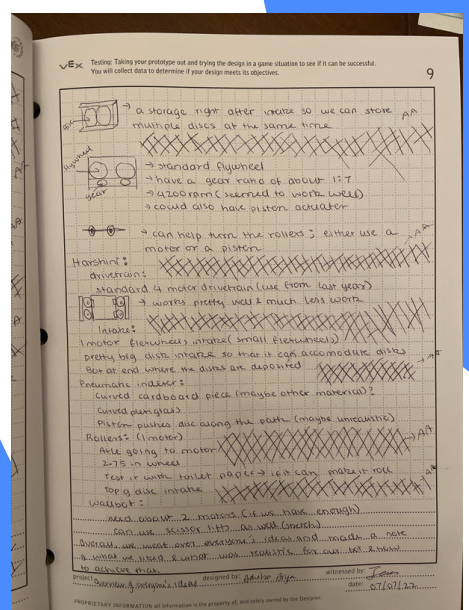 VEX Testing: Taking your prototype out and trying the design in a game situation to see if it can be successful.
You will collect data to determine if your design meets its objectives.
9
→ a storage right after intake so we can store
multiple discs at the same time
AA
flywheel
→ standard flywheel
→ have a gear ratio of about 1:7
gear
→ 4200rpm (seemed to work well)
→ could also have piston actuator
→ can help turn the rollers; either use a
motor or a piston
AA
Harshini:
drivetrain:
standard 4 motor drivetrain (use from last year)
→ works pretty well & much less work
Intake:
1 motor flexwheel intake (small flexwheels)
pretty big disk intake so that it can accomodate disks
Box at end where the disks are deposited
Pneumatic indexer:
Curved cardboard piece (maybe other material)?
Curved plexiglas)
Piston pushes disc along the path (maybe unrealistic)
Rollers: (1 motor)
Axle going to motor
AA
2.75 in wheel
Test it with toilet paper → if it can make it roll
Top g disc intake
Wallbot:
need about 2 motors (if we have enough)
can use scissor lift as well (sketch)
Overall, we went over everyone's ideas and made a note
of what we liked & what was realistic for our bot & how
to achieve that.
project Overview of everyone's ideas designed by: witnessed by:
date: 07/07/22
PROPRIETARY INFORMATION all information is the property of, and solely owned by the Designer.